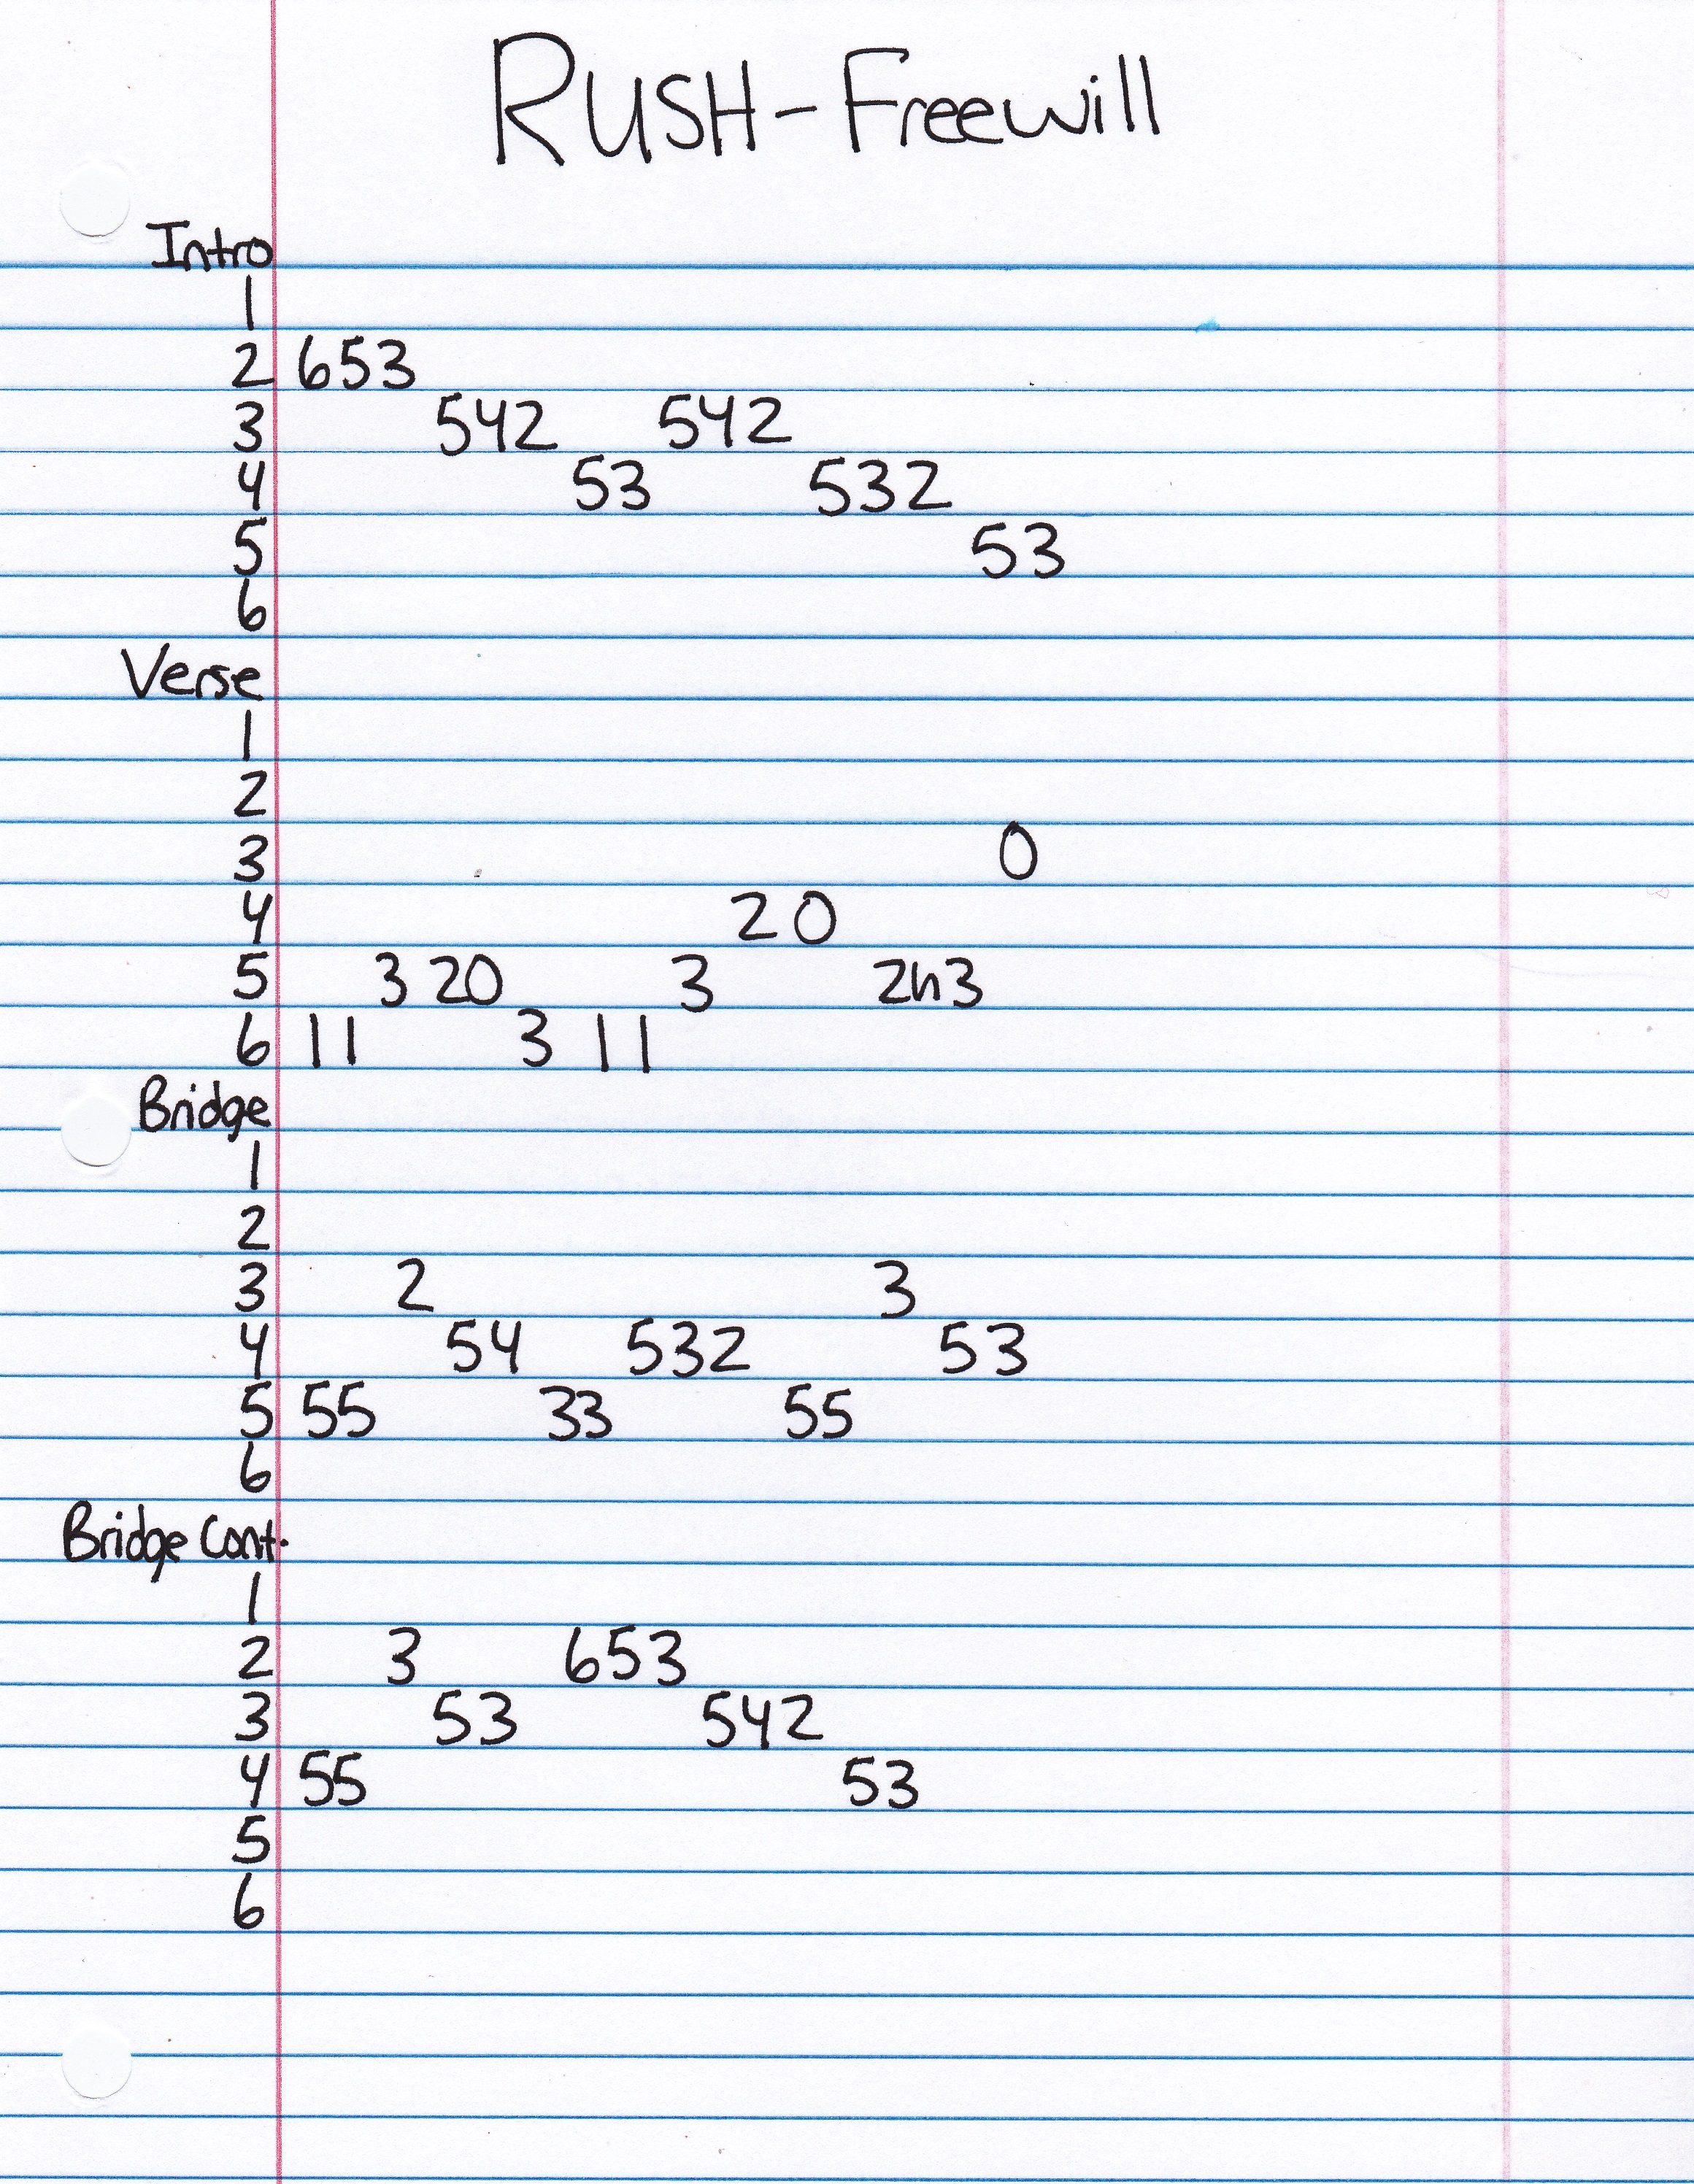 RUSH - Freewill
Intro
1
2 653
3 542 542
4 53 532
5 53
6
Verse
1
2
3 0
4 20
5 3 20 3 2h3
6 11 3 11
Bridge
1
2
3 2 3
4 54 532 53
5 55 33 55
6
Bridge Cont.
1
2 3 653
3 53 542
4 55 53
5
6